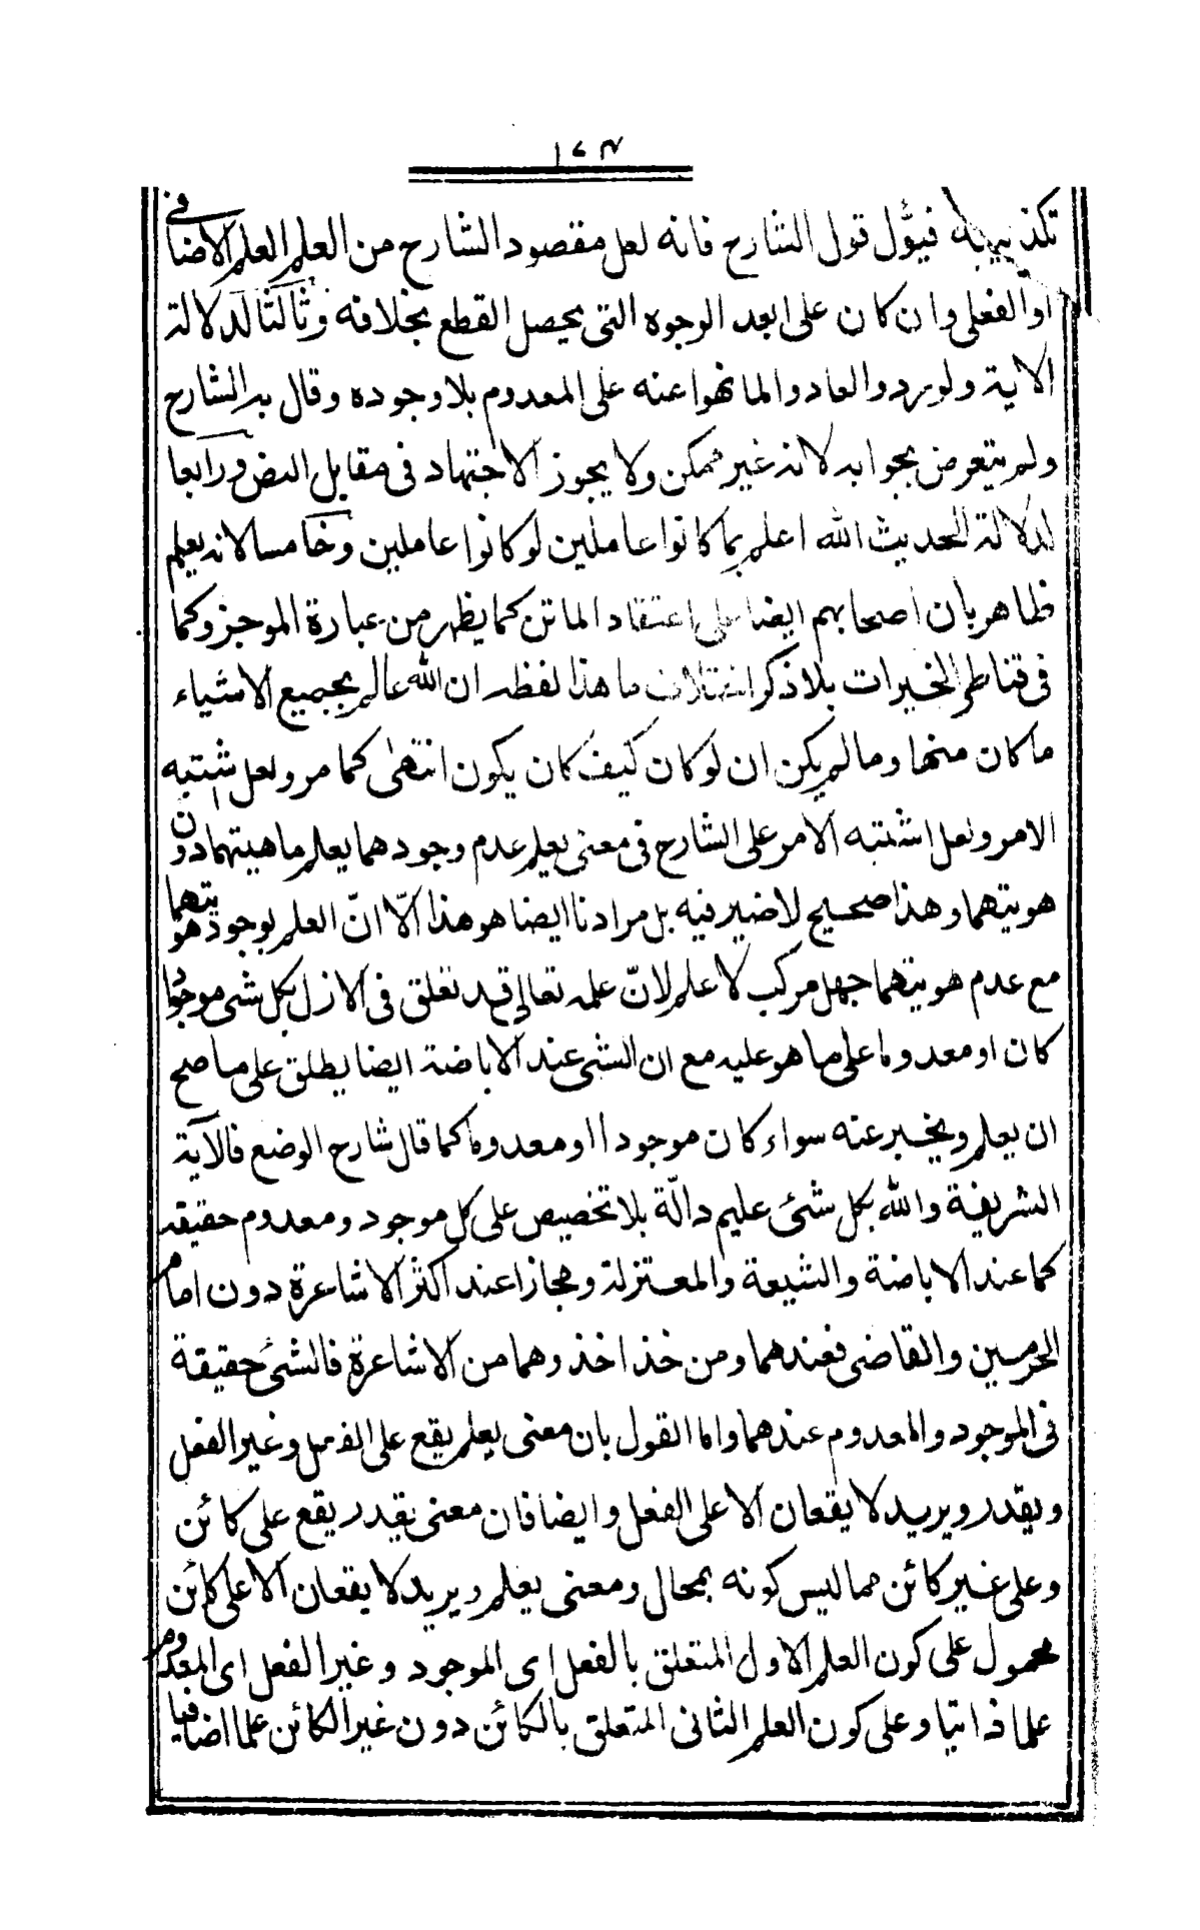 ١٧٣
تكذيبه فيؤل قول الشارح فانه لعل مقصود الشارح من العلم العلم الاضافى
او الفعلى وان كان على ابعد الوجوه التى يحصل القطع بخلافه وثالثا لدلالة
الاية ولو ردوا لعادوا لما نهوا عنه على المعدوم بلا وجوده وقال به الشارح
ولم يتعرض بجوابه لانه غير ممكن ولا يجوز الاجتهاد فى مقابل النص ورابعا
لدلالة الحديث الله اعلم بما كانوا عاملين لو كانوا عاملين وخامسا لانه يعلم
ظاهر بان اصحابهم ايضا على اعتقاد الماتن كما يظهر من عبارة الموجز وكما
فى قناطر الخيرات بلا ذكر اختلاف ما هذا لفظه ان الله عالم بجميع الاشياء
ما كان منها وما لم يكن ان لو كان كيف كان يكون انتهى كما مر ولعل اشتبه
الامر ولعل اشتبه الامر على الشارح فى معنى يعلم عدم وجودهما يعلم ماهيتهما دون
هويتهما وهذا صحيح لا ضير فيه بل مرادنا ايضا هو هذا الّا انّ العلم بوجود هويتهما
مع عدم هويتهما جهل مركب لا علم لانّ علمه تعالى قد تعلق فى الازل بكل شى موجودا
كان او معدوما على ما هو عليه مع ان الشى عند الاباضة ايضا يطلق على ما صح
ان يعلم ويخبر عنه سواء كان موجودا او معدوما كما قال شارح الوضع فالآية
الشريفة والله بكل شئ عليم دالّة بلا تخصيص على كل موجود ومعدوم حقيقة
كما عند الاباضة والشيعة والمعتزلة ومجازا عند اكثر الاشاعرة دون امام
الحرمين والقاضى فعندهما ومن خذا خذوهما من الاشاعرة فالشئ حقيقة
فى الموجود والمعدوم عندهما واما القول بان معنى يعلم يقع على الفعل وغير الفعل
ويقدر ويريد لا يقعان الا على الفعل وايضا فان معنى يقدر يقع على كائن
وعلى غير كائن مما ليس كونه بمحال ومعنى يعلم ويريد لا يقعان الا على كائن
محمول على كون العلم الاول المتعلق بالفعل اى الموجود وغير الفعل اى المعدوم
علما ذاتيا وعلى كون العلم الثانى المتعلق بالكائن دون غير الكائن علما اضافيا